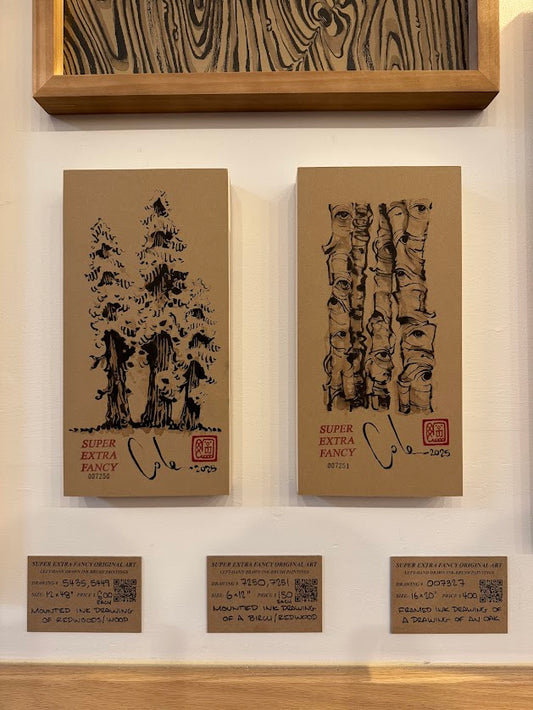 SUPER
EXTRA
FANCY
007250
Cole -2025
SUPER
EXTRA
FANCY
007251
Cole -2025
SUPER EXTRA FANCY ORIGINAL ART
LEFT-HAND DRAWN INK-BRUSH PAINTINGS
DRAWING # 5435,5449
SIZE: 12×48" PRICE $ 600
EACH
MOUNTED INK DRAWING
OF REDWOODS/WOOD
SUPER EXTRA FANCY ORIGINAL ART
LEFT-HAND DRAWN INK-BRUSH PAINTINGS
DRAWING # 7250,7251
SIZE: 6×12" PRICE $ 150
EACH
MOUNTED INK DRAWING
OF A BIRCH/REDWOOD
SUPER EXTRA FANCY ORIGINAL ART
LEFT-HAND DRAWN INK-BRUSH PAINTINGS
DRAWING # 007327
SIZE: 16×20" PRICE $ 400
FRAMED INK DRAWING OF
A DRAWING OF AN OAK